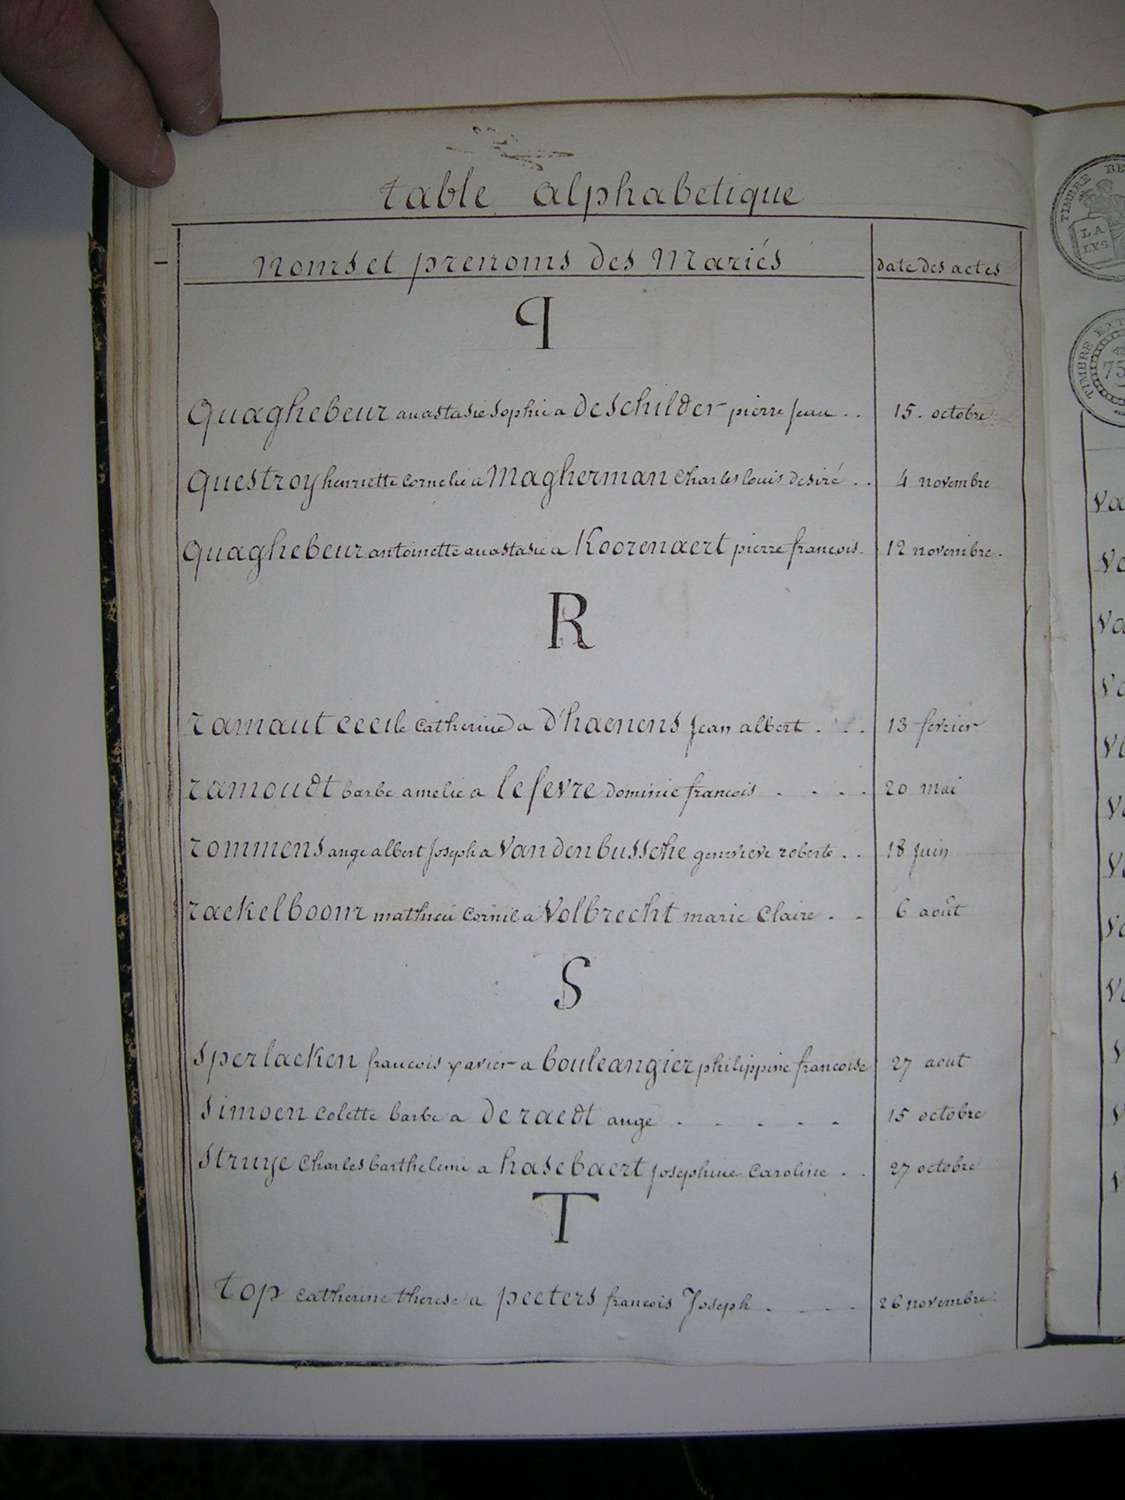 table alphabetique
noms et prenoms des Mariés date des actes
q
quaghebeur anastasie sophie a deschilder pierre jean . . 15. octobre
questroy henriette cornelie a Magherman charles louis desiré . . 4 novembre
quaghebeur antoinette anastasie a Koorenaert pierre francois . 12 novembre .
R
ramaut cecile catherine a d'haenens jean albert . . . 13 fevrier
ramoudt barbe amelie a lefevre dominic francois . . . . 20 mai
rommens ange albert joseph a Vandenbussche genevieve roberte . . 18 juin
rackelboom mathieu cornil a Volbrecht marie Claire . . 6 août
S
Sperlacken francois xavier a bouleangier philippine francoise 27 aout
Simoen colette barbe a deraedt ange . . . . . 15 octobre
Struye Charles barthelemi a hasebaert josephine Caroline . . 27 octobre
T
top catherine therese a peeters francois Joseph . . . . 26 novembre
TIMBRE BE
LA
LYS
TIMBRE EXT
75
Va
Vl